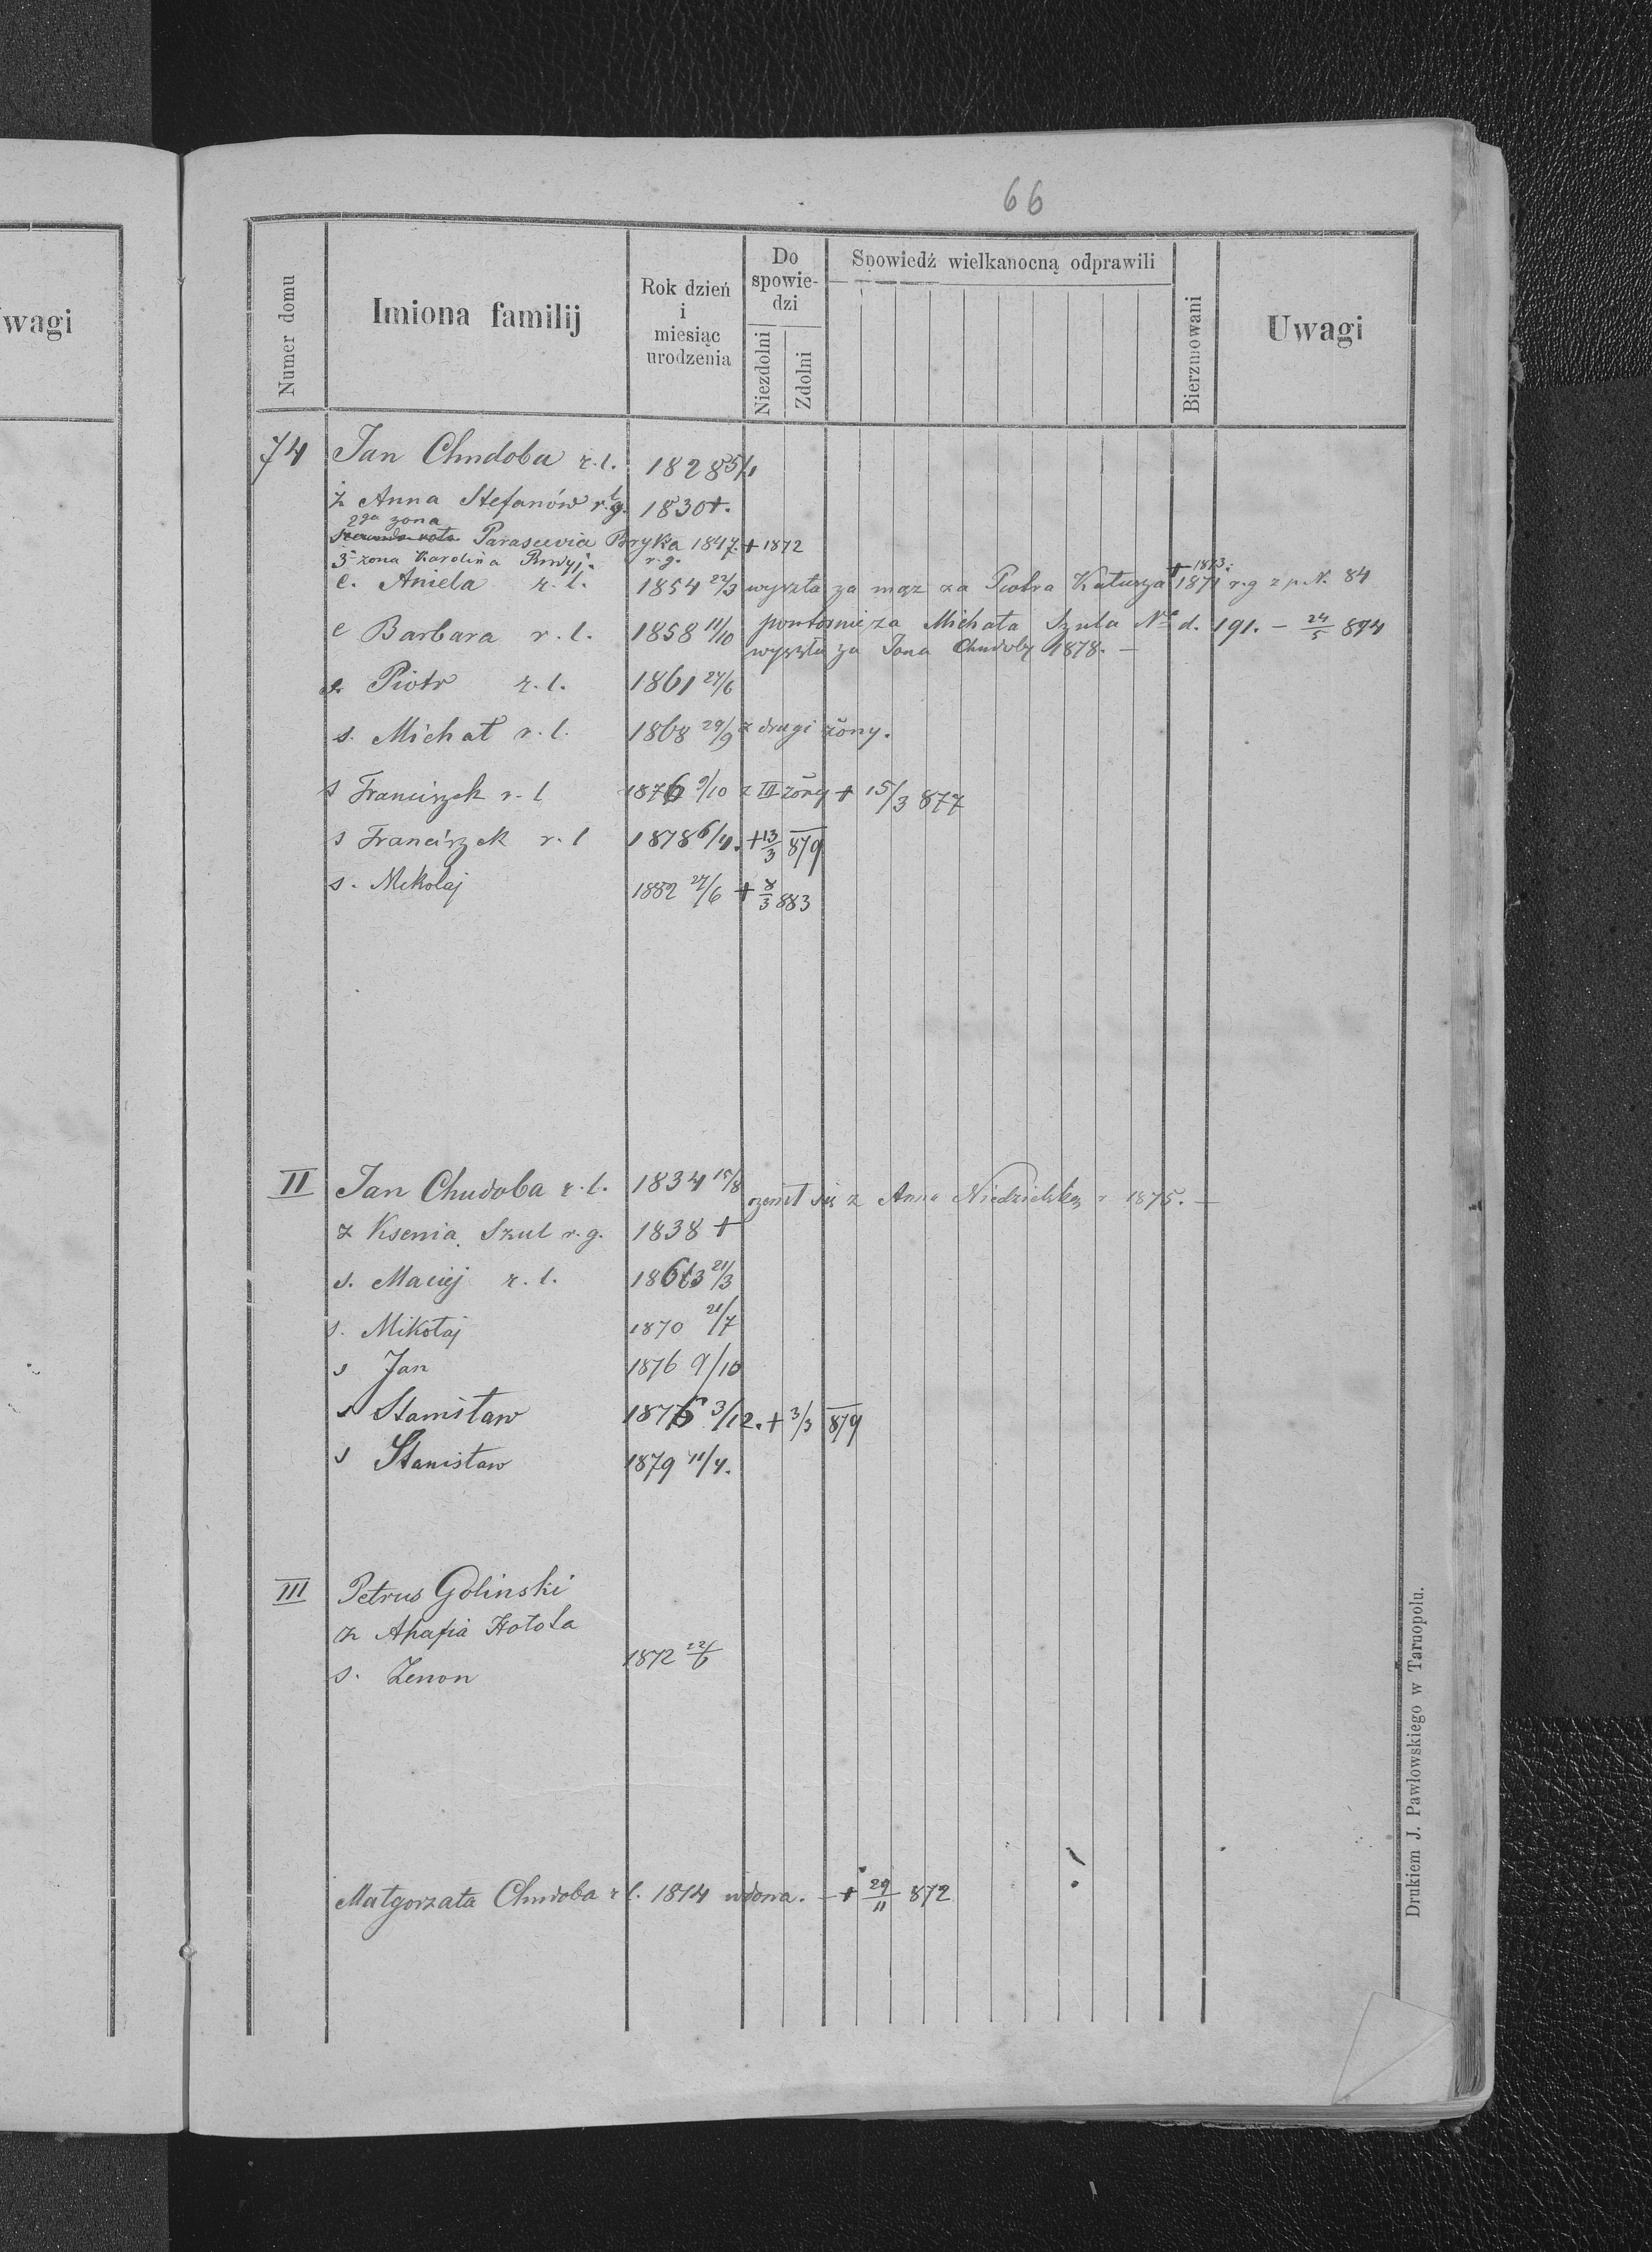 66
wagi
Numer domu
Imiona familij
Rok dzień
i
miesiąc
urodzenia
Do
spowie-
dzi
Niezdolni
Zdolni
Spowiedź wielkanocną odprawili
Bierzmowani
Uwagi
74 Jan Chudoba r.l. 1828 5/1
ż Anna Stefanów r.g. 1830 +.
2ga żona
Parascevia Bryka 1847. + 1872
3 żona Karolina r.g.
c. Aniela r.l. 1854 22/3 wyszła za mąż za Piotra Katurza 1871 r.g z p. N. 84
+ 1873.
c Barbara r.l. 1858 11/10 powtórnie za Michała Szula No d. 191. – 24/5 874
wyszła za Jana Chudobę 1878. –
s. Piotr r.l. 1861 27/6
s. Michał r.l. 1868 29/9 z drugi żony.
s Franciszek r.l 1876 9/10 z III żony + 15/3 877
s Franciszek r.l 1878 6/4. + 13/3 879
s. Mikołaj 1882 27/6 + 8/3 883
II Jan Chudoba r.l. 1834 15/8 ożenił się z Anna Niedzielską r 1875. –
ż Ksenia Szul r.g. 1838 +
s. Maciej r.l. 1863 21/3
s. Mikołaj 1870 21/7
s Jan 1876 9/10
s Stanisław 1876 3/12. + 3/3 879
s Stanisław 1879 11/4.
III Petrus Golinski
ż Ahafia Hotota
s. Zenon 1872 22/6
Małgorzata Chudoba r l. 1814 wdowa. – + 29/11 872
Drukiem J. Pawłowskiego w Tarnopolu.